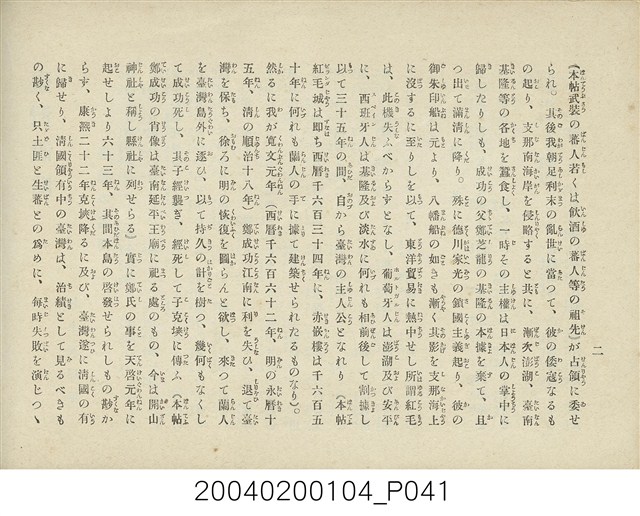 二
(本帖武裝の蕃人若くは飲酒の蕃人等の祖先)が占領に委せ
られ。其後我朝足利末の亂世に當つて、彼の倭寇なるも
の起り、支那南海岸を侵略すると共に、漸次澎湖、臺南
基隆等の各地を蠶食し、一時その主權は日本人の掌中に
歸したりしも、成功の父鄭芝龍の基隆の本據を棄て、且
つ出て滿清に降り。殊に德川家光の鎖國主義起り、彼の
御朱印船は元より、八幡船の如きも漸く其影を支那海上
に沒するに至りしを以て、東洋貿易に熱中せし所謂紅毛
は、此機失ふべからずとなし、葡萄牙人は澎湖及び安平
に、西班牙人は基隆及び淡水に何れも相前後して割據し
以て三十五年の間、自から臺灣の主人公となれり (本帖
紅毛城は即ち西曆千六百三十四年に、赤嵌樓は千六百五
十年に何れも蘭人の手に據て建築せられたるものなり)。
然るに我が寬文元年 (西曆千六百六十二年、明の永曆十
五年、淸の順治十八年) 鄭成功江南に利を失ひ、退て臺
灣を保ち、徐ろに明の恢復を圖らんと欲し、來つて蘭人
を臺灣島外に逐ひ、以て持久の計を樹つ、幾何もなくし
て成功死し、其子經襲ぎ、經死して子克塽に傳ふ (本帖
鄭成功の肖像は臺南延平王廟に祀る處のもの、今は開山
神社と稱し縣社に列せらる) 實に鄭氏の事を天啓元年に
起せしより六十三年、其間本島の啓發せられしもの尠か
らず、康熙二十二年克塽降るに及び、臺灣遂に淸國の有
に歸せり、淸國領有中の臺灣は、治績として見るべきも
の尠く、只土匪と生蕃との爲めに、每時失敗を演じつゝ
20040200104_P041